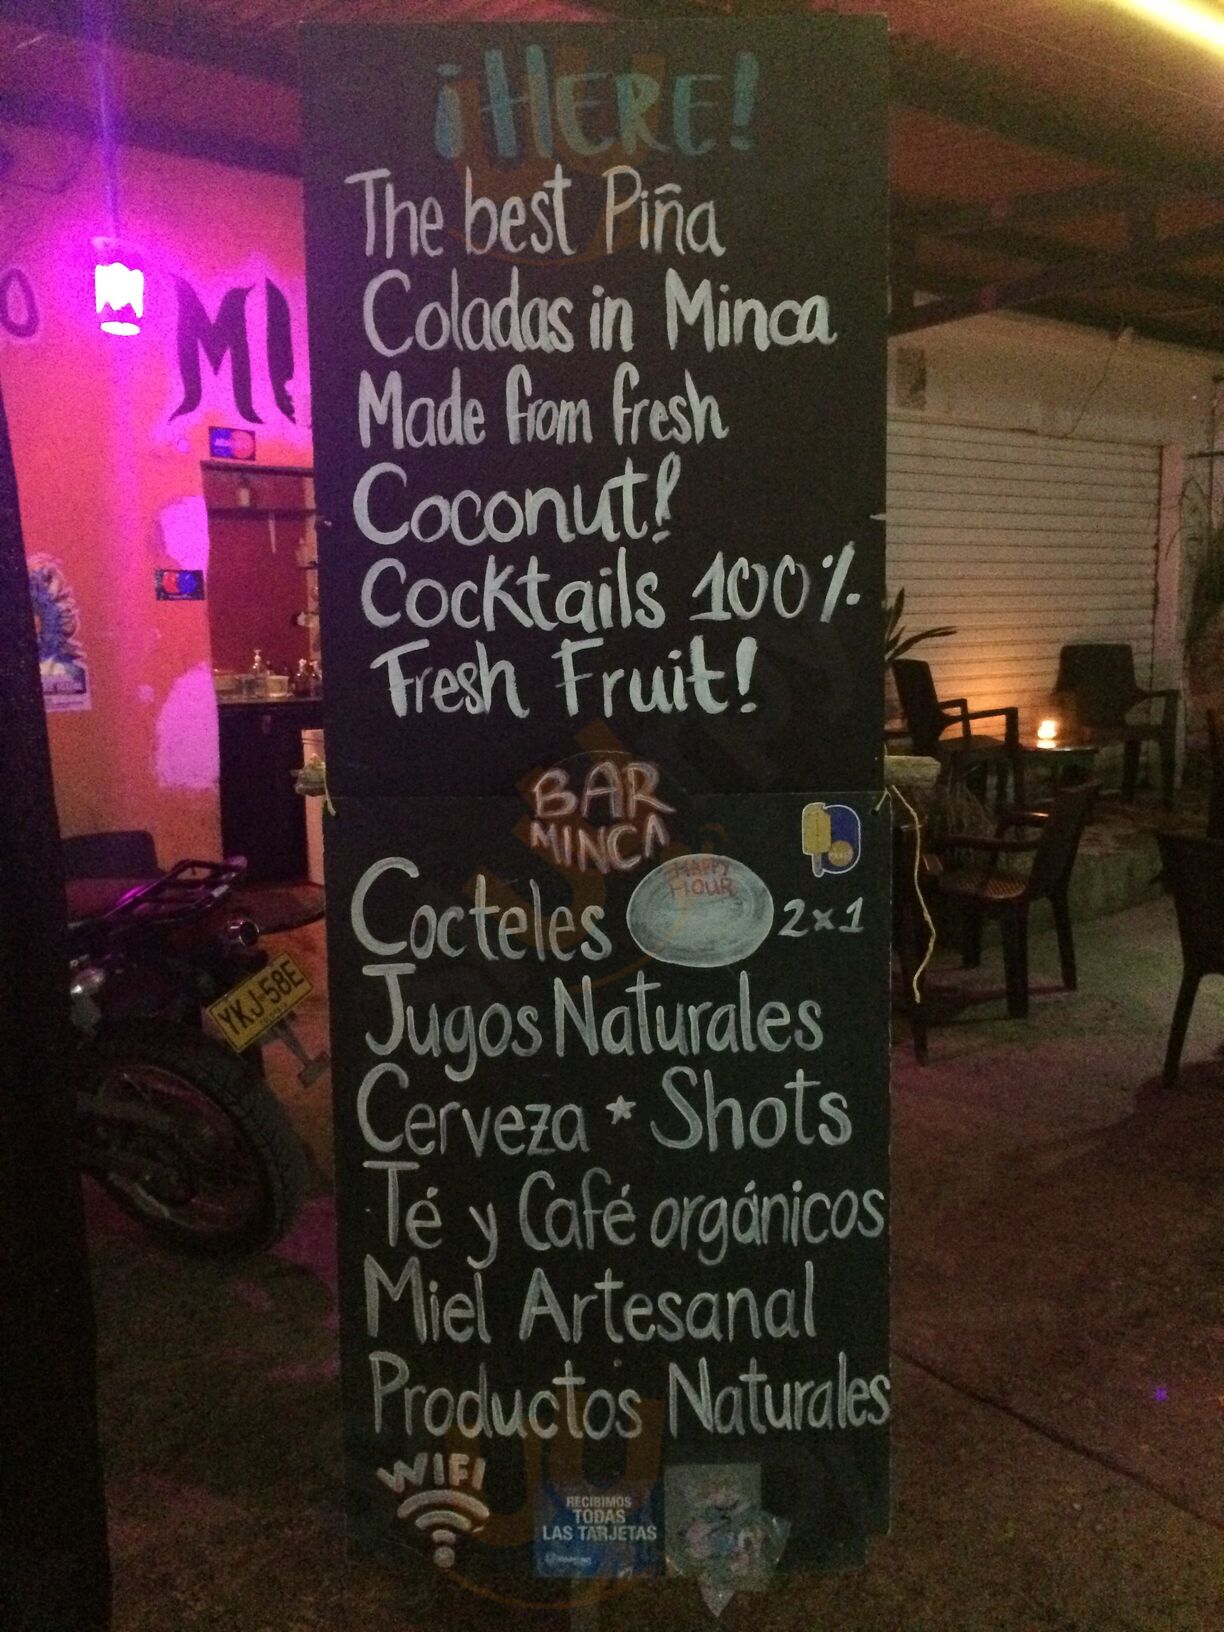 ¡HERE!
The best Piña
Coladas in Minca
Made from fresh
Coconut!
Cocktails 100%
Fresh Fruit!
BAR
MINCA
HAPPY
HOUR
Cocteles 2x1
Jugos Naturales
Cerveza * Shots
Té y Café orgánicos
Miel Artesanal
Productos Naturales
WIFI
RECIBIMOS
TODAS
LAS TARJETAS
YKJ-58E